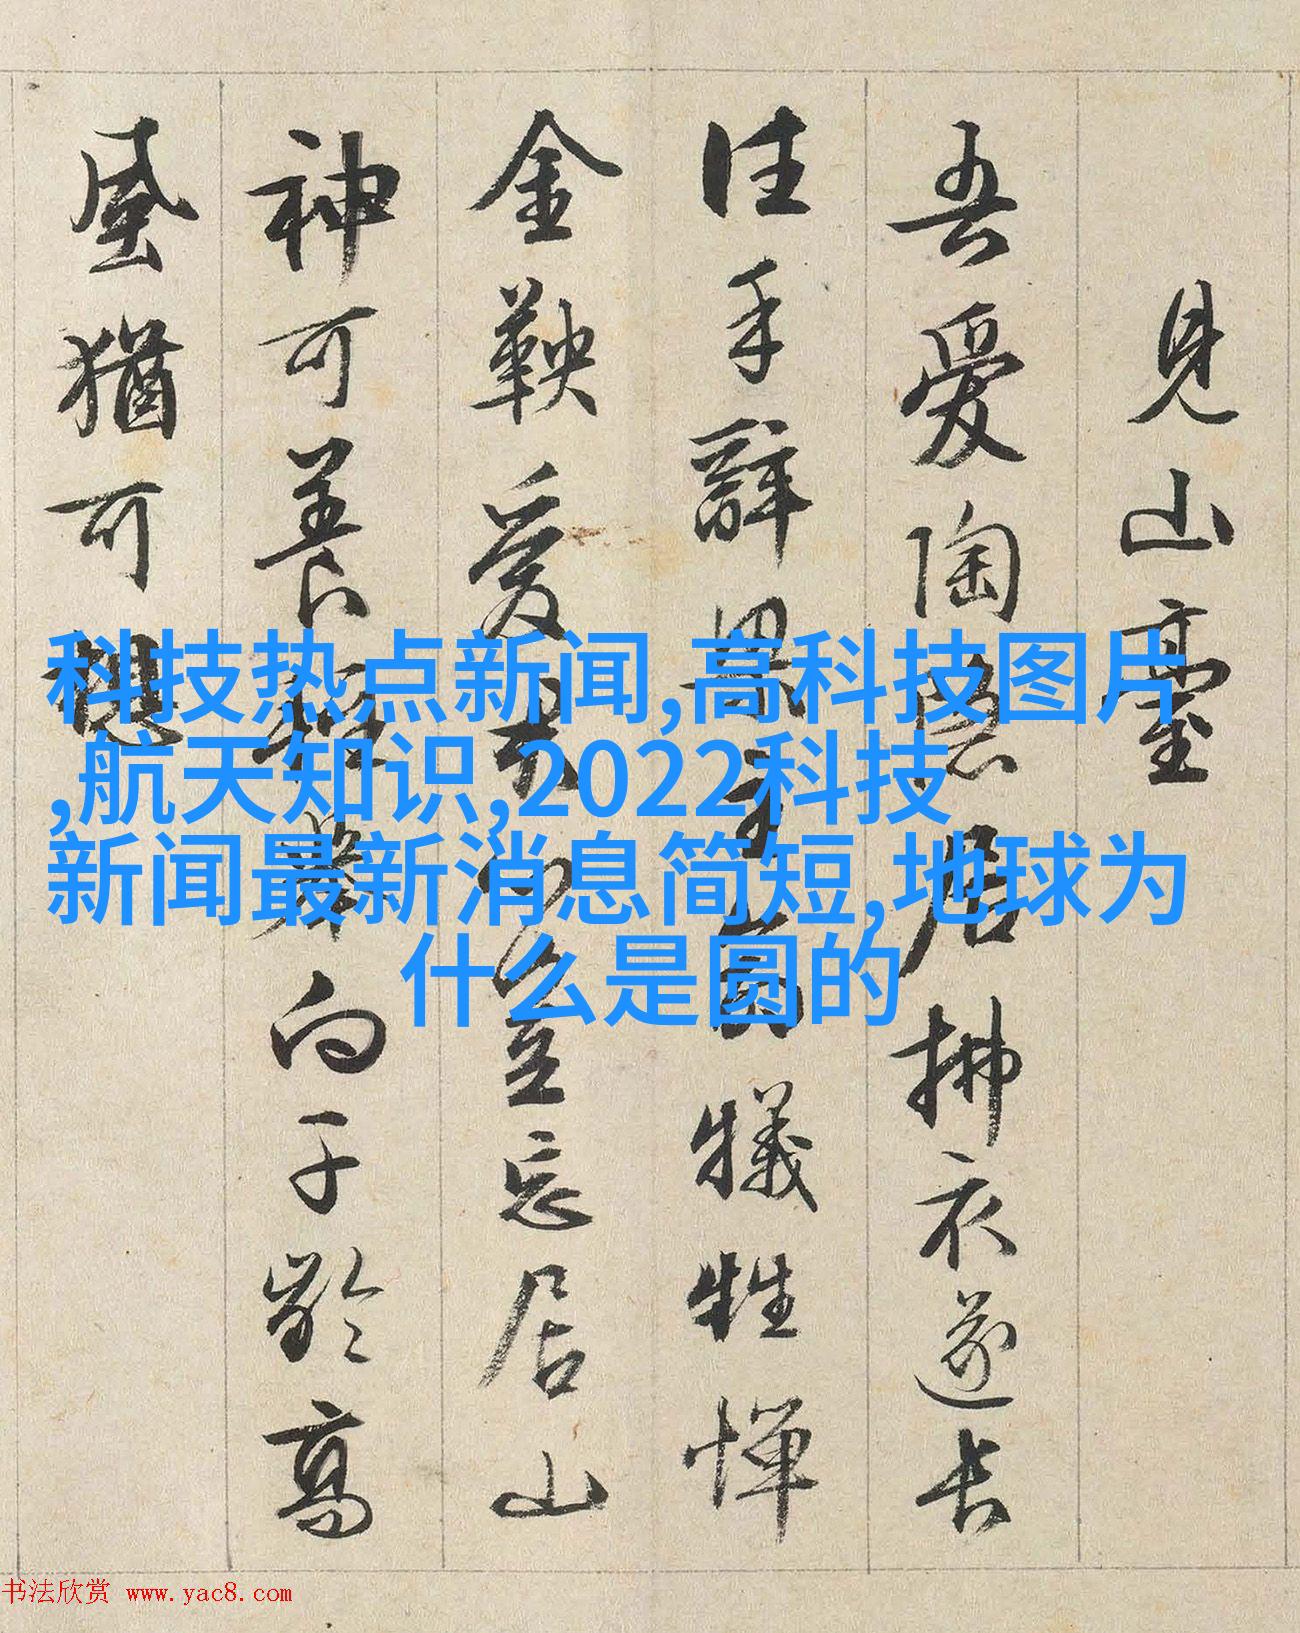 見山臺
吾愛陶隱居拂衣遂長
往手辭主畫犧牲憚
金鞅愛忘居山
神可養向千齡高
風猶可想
科技热点新闻,高科技图片
,航天知识,2022科技
新闻最新消息简短,地球为
什么是圆的
书法欣赏 www.yac8.com